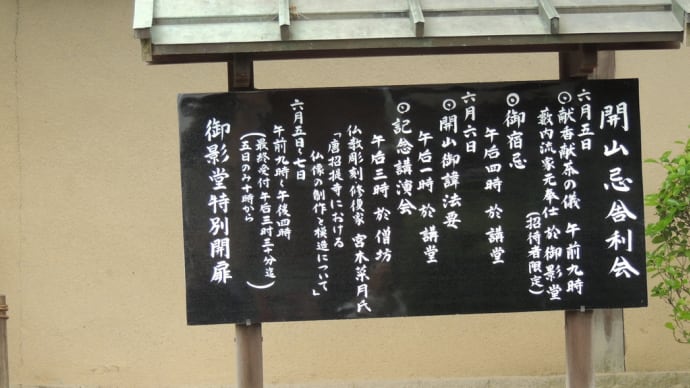 開山忌舎利会
六月五日
◎献香献茶の儀 午前九時
藪内流家元奉仕 於御影堂
(招待者限定)
◎御宿忌
午后四時 於講堂
六月六日
◎開山御諱法要
午后一時 於講堂
◎記念講演会
午后三時 於僧坊
仏教彫刻修復家 宮木菜月氏
「唐招提寺における
仏像の制作と模造について」
六月五日~七日
午前九時~午後四時
(最終受付 午后三時三十分迄)
五日のみ十時から
御影堂特別開扉